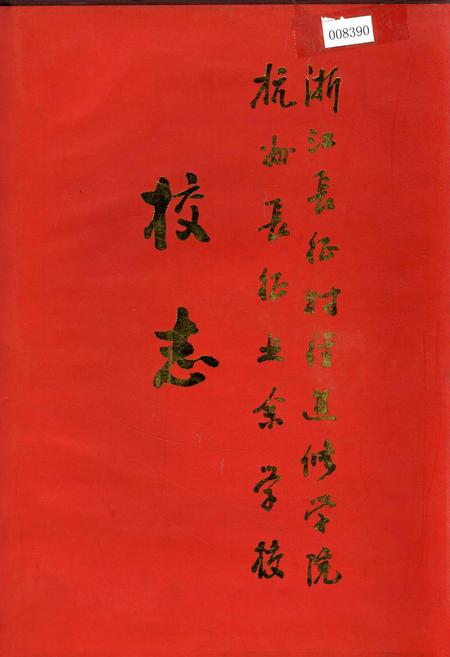 008390
浙江長征财经進修学院
杭州長征业余学校
校志